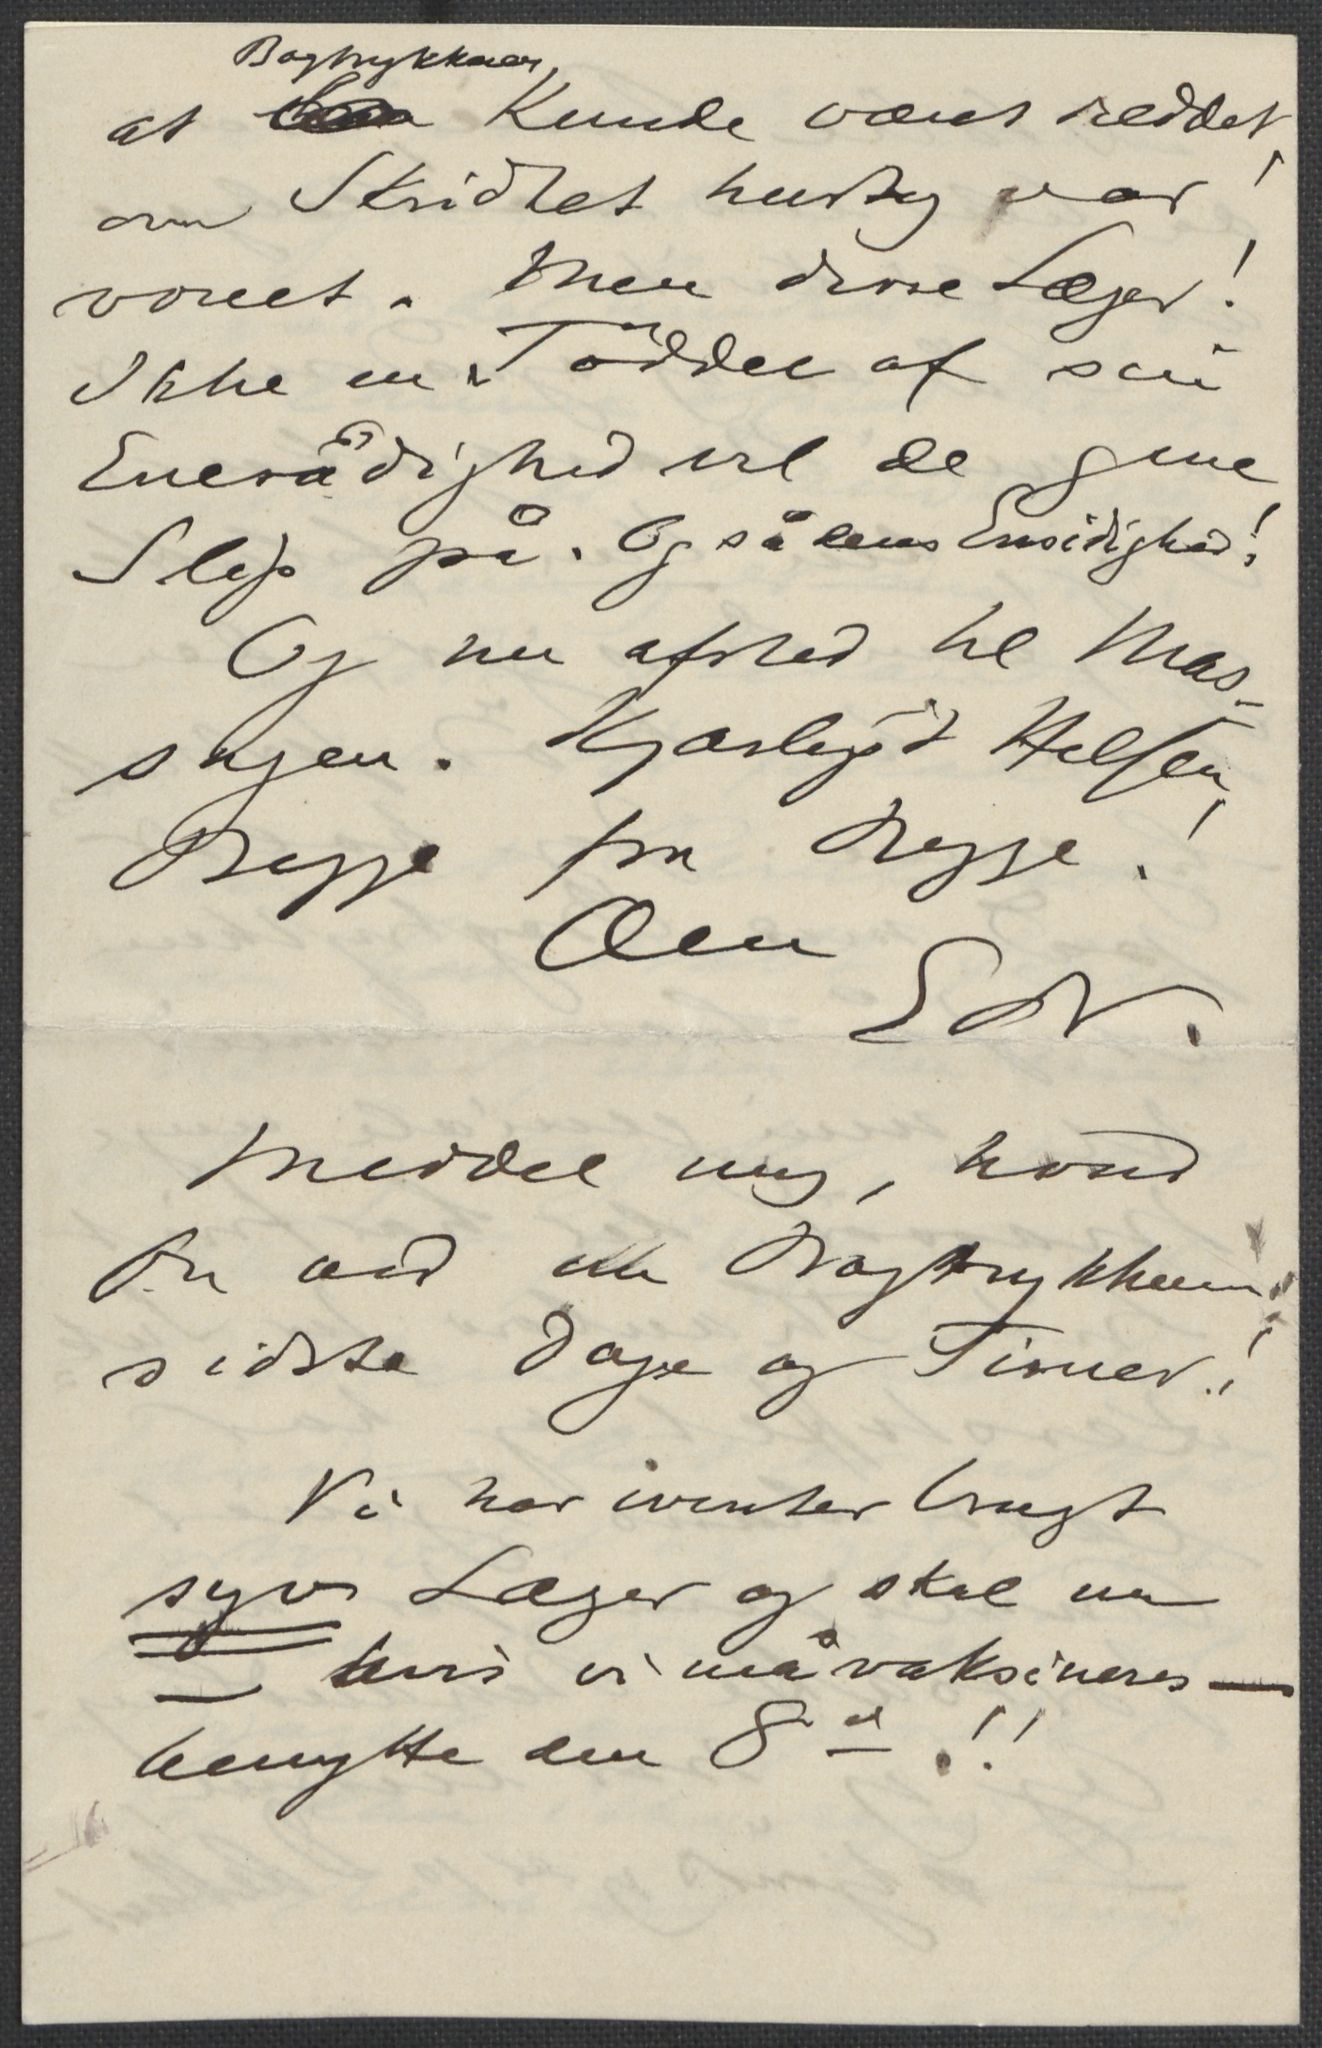 Bogtrykkeren
at kunde været reddet,
om Skridtet hurtig var
voret. Men disse Læger!
Ikke en Tøddel af sin
Enerådighed vil de give
Slip på. Og så deres Ensidighed!
Og nu afsted til Mas-
sagen. Kjærligst Hilsen,
Begge fra Begge!
Din
Edv.
Meddel mig, hvad
Du ved om Bogtrykkeren
sidste Dage og Timer!
Vi har ivinter brugt
syv Læger og skal nu
— hvis vi må vaksineres —
benytte den 8de!!